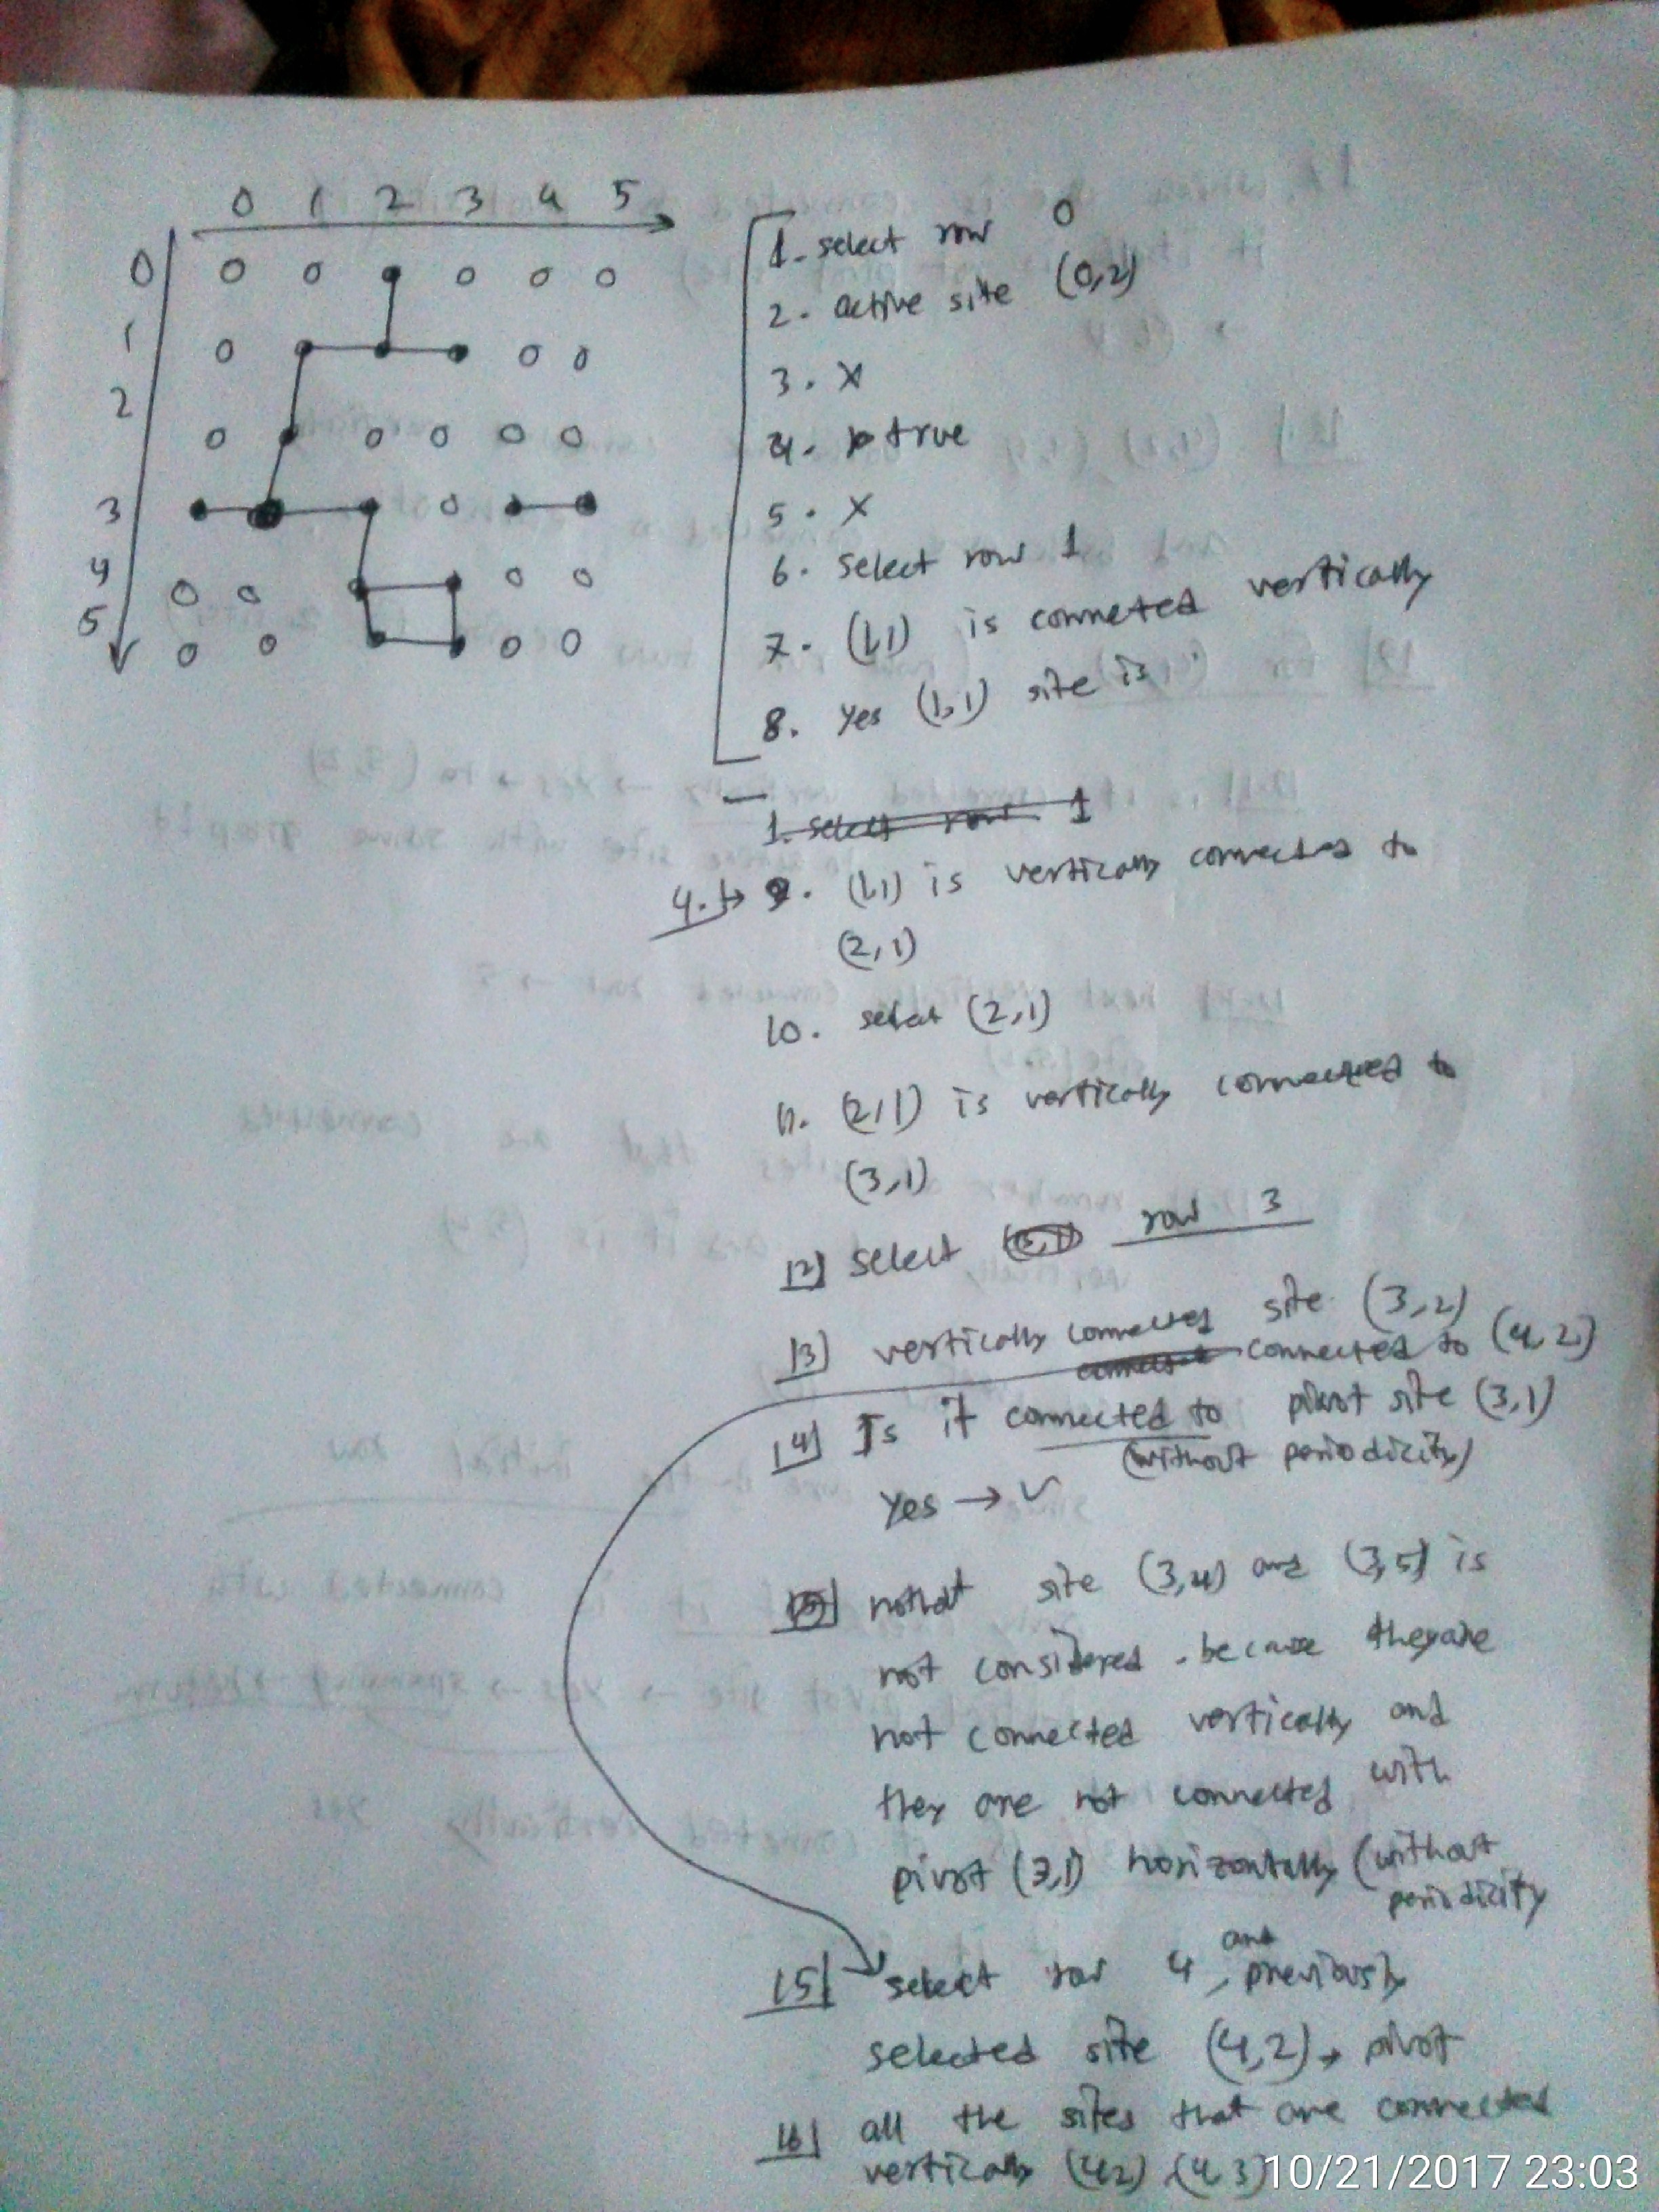 0 1 2 3 4 5
0
1
2
3
4
5
1. select row 0
2. active site (0,2)
3. X
4. true
5. X
6. select row 1
7. (1,1) is conneted vertically
8. Yes (1,1) site is
1. select row 1
4. 9. (1,1) is vertically connected to
(2,1)
10. select (2,1)
11. (2,1) is vertically connected to
(3,1)
12] select (3,1) row 3
13] vertically connected site (3,2)
connected to (4,2)
14] Is it connected to pivot site (3,1)
(without periodicity)
Yes → ✓
site (3,4) and (3,5) is
not considered. because they are
not connected vertically and
they are not connected with
pivot (3,1) horizontally (without
periodicity
15] select row 4, and previously
selected site (4,2) → pivot
16] all the sites that are connected
vertically (4,2) (4,3)
10/21/2017 23:03